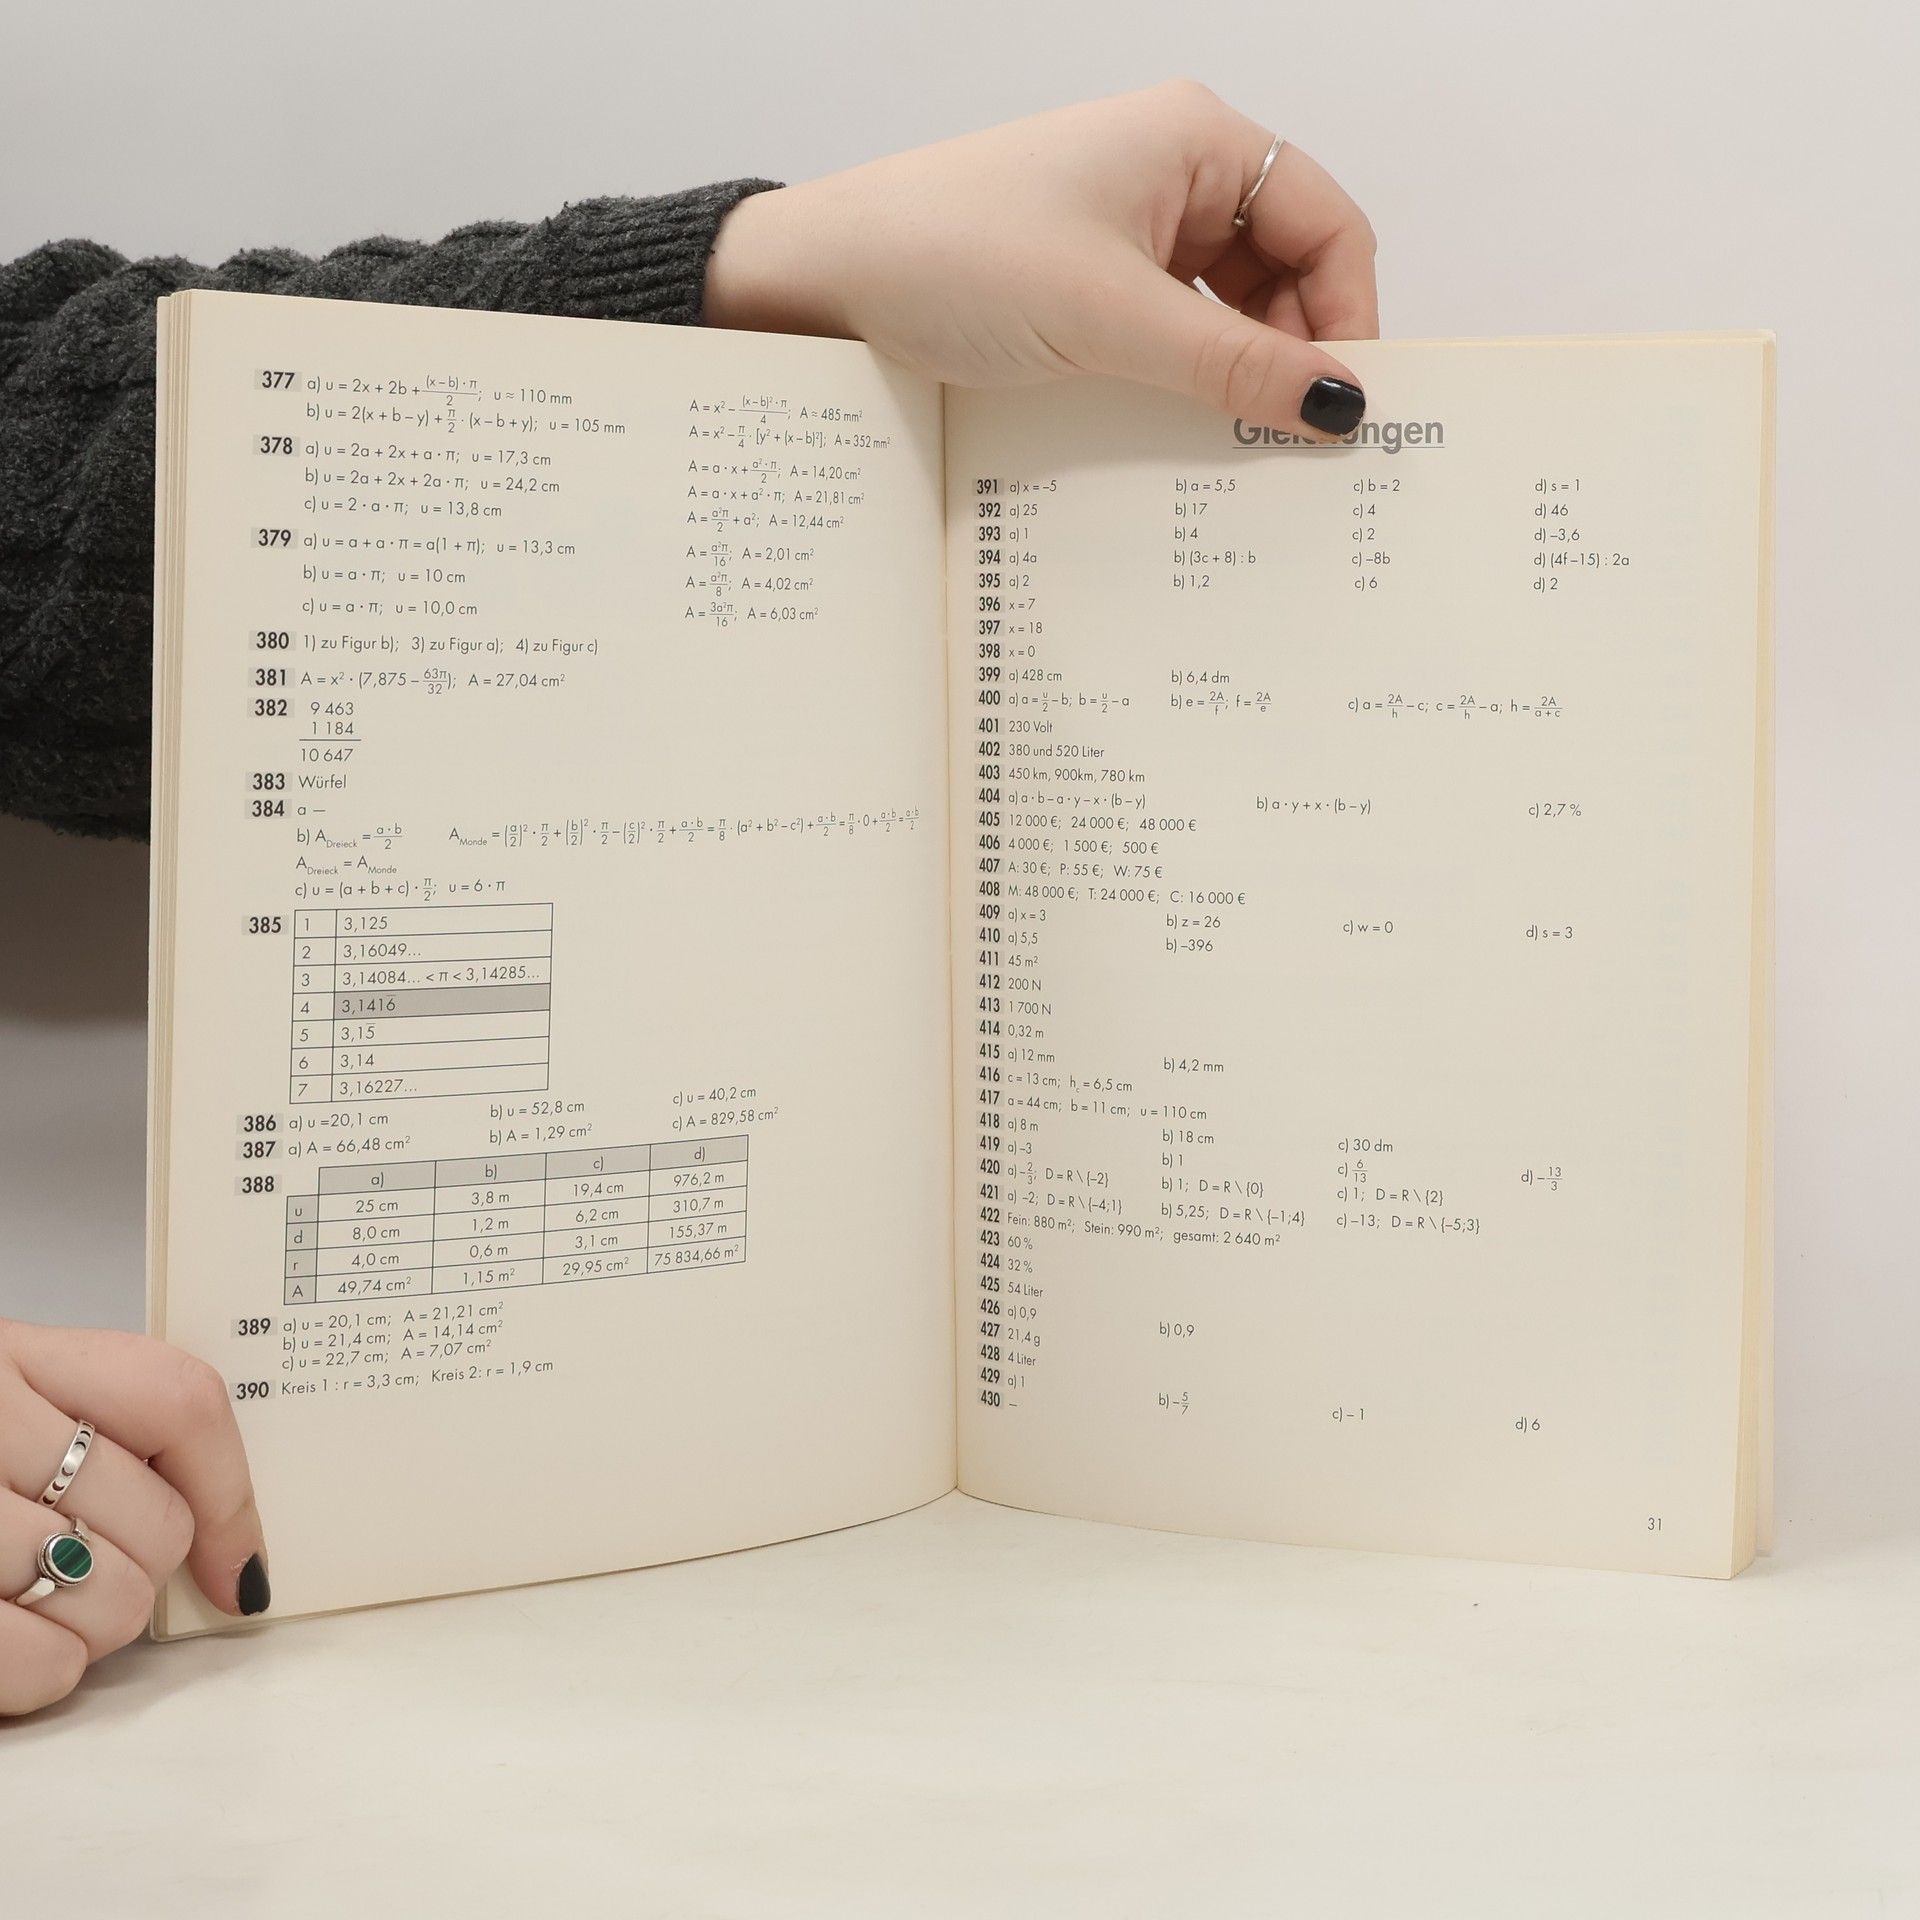 377 a) u = 2x + 2b + (x – b) · π / 2; u ≈ 110 mm A = x² – (x – b)² · π / 4; A ≈ 485 mm²
b) u = 2(x + b – y) + π/2 · (x – b + y); u = 105 mm A = x² – π/4 · [y² + (x – b)²]; A = 352 mm²
378 a) u = 2a + 2x + a · π; u = 17,3 cm A = a · x + a² · π / 2; A = 14,20 cm²
b) u = 2a + 2x + 2a · π; u = 24,2 cm A = a · x + a² · π; A = 21,81 cm²
c) u = 2 · a · π; u = 13,8 cm A = a²π/2 + a²; A = 12,44 cm²
379 a) u = a + a · π = a(1 + π); u = 13,3 cm A = a²π/16; A = 2,01 cm²
b) u = a · π; u = 10 cm A = a²π/8; A = 4,02 cm²
c) u = a · π; u = 10,0 cm A = 3a²π/16; A = 6,03 cm²
380 1) zu Figur b); 3) zu Figur a); 4) zu Figur c)
381 A = x² · (7,875 – 63π/32); A = 27,04 cm²
382 9 463
1 184
10 647
383 Würfel
384 a —
b) A Dreieck = a · b / 2 A Monde = (a/2)² · π/2 + (b/2)² · π/2 – (c/2)² · π/2 + a · b / 2 = π/8 · (a² + b² – c²) + a · b / 2 = π/8 · 0 + a · b / 2 = a · b / 2
A Dreieck = A Monde
c) u = (a + b + c) · π/2; u = 6 · π
385 1 3,125
2 3,16049...
3 3,14084... < π < 3,14285...
4 3,1416̅
5 3,15̅
6 3,14
7 3,16227...
386 a) u =20,1 cm b) u = 52,8 cm c) u = 40,2 cm
387 a) A = 66,48 cm² b) A = 1,29 cm² c) A = 829,58 cm²
388 a) b) c) d)
u 25 cm 3,8 m 19,4 cm 976,2 m
d 8,0 cm 1,2 m 6,2 cm 310,7 m
r 4,0 cm 0,6 m 3,1 cm 155,37 m
A 49,74 cm² 1,15 m² 29,95 cm² 75 834,66 m²
389 a) u = 20,1 cm; A = 21,21 cm²
b) u = 21,4 cm; A = 14,14 cm²
c) u = 22,7 cm; A = 7,07 cm²
390 Kreis 1 : r = 3,3 cm; Kreis 2: r = 1,9 cm
391 a) x = –5 b) a = 5,5 c) b = 2 d) s = 1
392 a) 25 b) 17 c) 4 d) 46
393 a) 1 b) 4 c) 2 d) –3,6
394 a) 4a b) (3c + 8) : b c) –8b d) (4f –15) : 2a
395 a) 2 b) 1,2 c) 6 d) 2
396 x = 7
397 x = 18
398 x = 0
399 a) 428 cm b) 6,4 dm
400 a) a = u/2 – b; b = u/2 – a b) e = 2A/f; f = 2A/e c) a = 2A/h – c; c = 2A/h – a; h = 2A/(a + c)
401 230 Volt
402 380 und 520 Liter
403 450 km, 900km, 780 km
404 a) a · b – a · y – x · (b – y) b) a · y + x · (b – y) c) 2,7 %
405 12 000 €; 24 000 €; 48 000 €
406 4 000 €; 1 500 €; 500 €
407 A: 30 €; P: 55 €; W: 75 €
408 M: 48 000 €; T: 24 000 €; C: 16 000 €
409 a) x = 3 b) z = 26 c) w = 0 d) s = 3
410 a) 5,5 b) –396
411 45 m²
412 200 N
413 1 700 N
414 0,32 m
415 a) 12 mm b) 4,2 mm
416 c = 13 cm; h c = 6,5 cm
417 a = 44 cm; b = 11 cm; u = 110 cm
418 a) 8 m b) 18 cm c) 30 dm
419 a) –3 b) 1 c) 6/13 d) –13/3
420 a) –2/3; D = R \ {–2} b) 1; D = R \ {0} c) 1; D = R \ {2}
421 a) –2; D = R \ {–4;1} b) 5,25; D = R \ {–1;4} c) –13; D = R \ {–5;3}
422 Fein: 880 m²; Stein: 990 m²; gesamt: 2 640 m²
423 60 %
424 32 %
425 54 Liter
426 a) 0,9 b) 0,9
427 21,4 g
428 4 Liter
429 a) 1 b) –5/7 c) – 1 d) 6
430 –
31